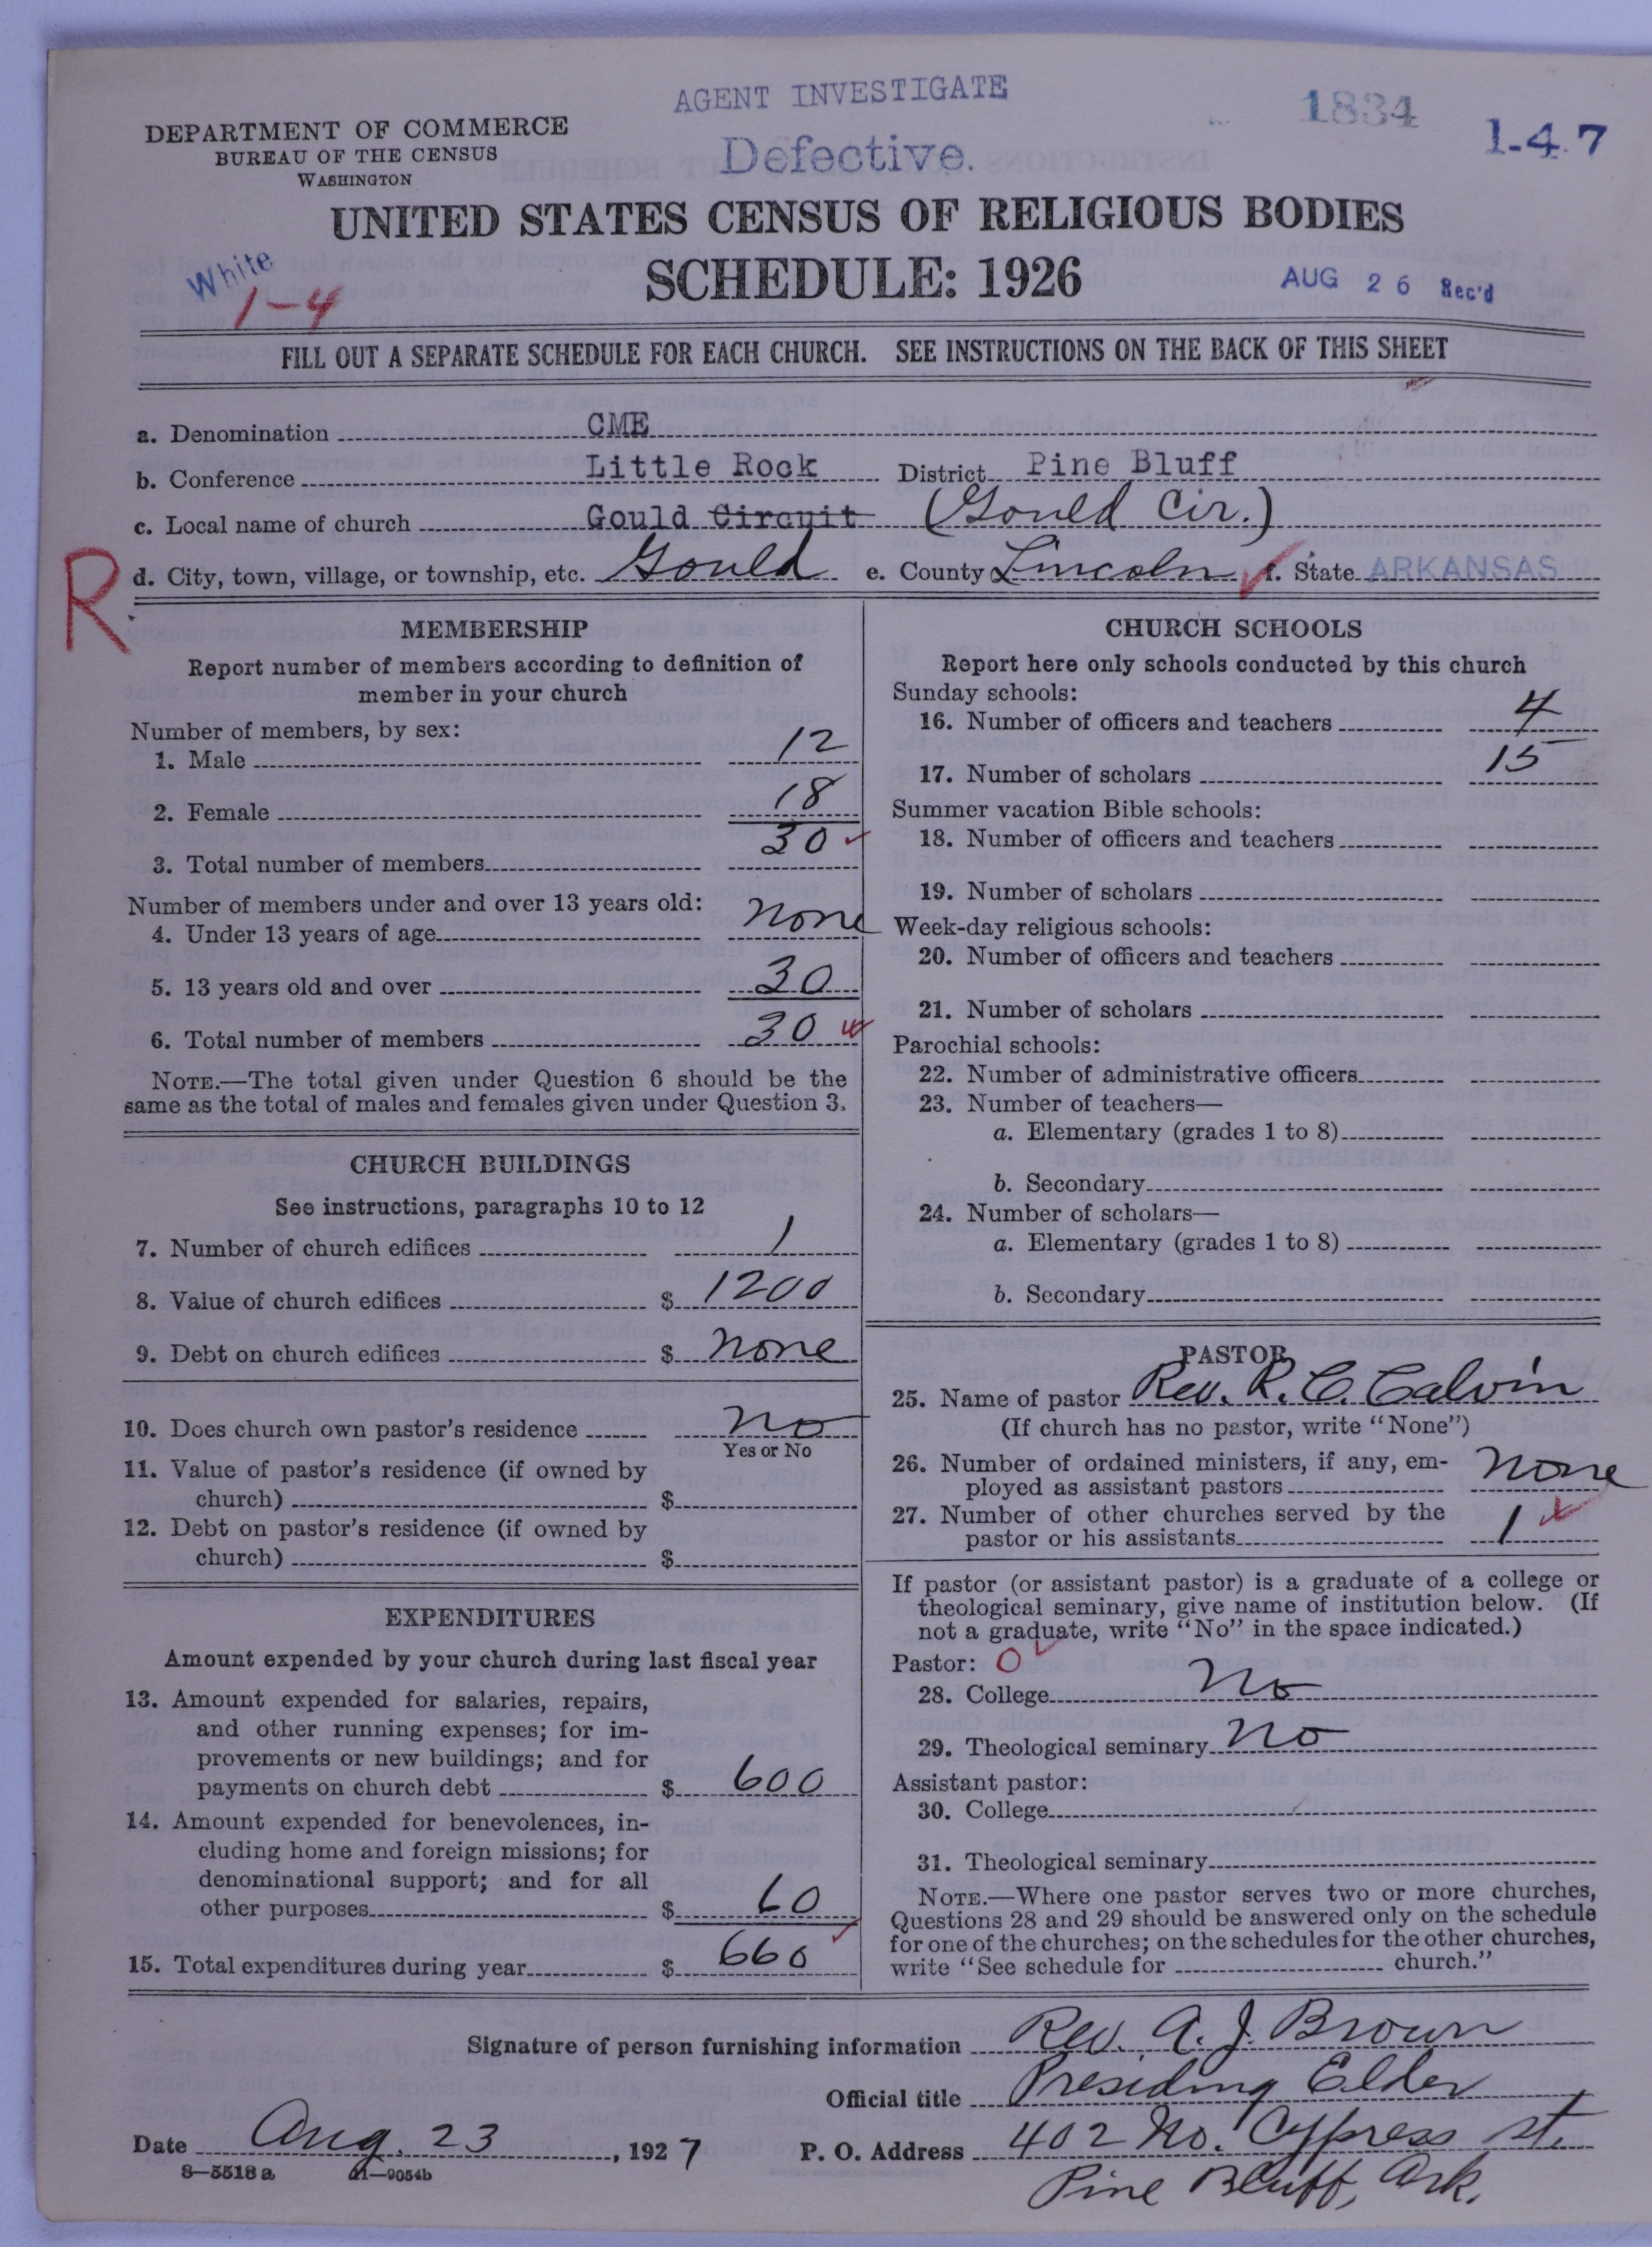 AGENT INVESTIGATE
Defective.
1834
1-4 7
DEPARTMENT OF COMMERCE
BUREAU OF THE CENSUS
WASHINGTON
UNITED STATES CENSUS OF RELIGIOUS BODIES
SCHEDULE: 1926
White
1-4
AUG 26 Rec'd
FILL OUT A SEPARATE SCHEDULE FOR EACH CHURCH. SEE INSTRUCTIONS ON THE BACK OF THIS SHEET
a. Denomination CME
b. Conference Little Rock District Pine Bluff
c. Local name of church Gould Circuit (Gould Cir.)
R
d. City, town, village, or township, etc. Gould e. County Lincoln f. State ARKANSAS
MEMBERSHIP
Report number of members according to definition of
member in your church
Number of members, by sex:
1. Male 12
2. Female 18
3. Total number of members 30
Number of members under and over 13 years old:
4. Under 13 years of age none
5. 13 years old and over 30
6. Total number of members 30
NOTE.—The total given under Question 6 should be the
same as the total of males and females given under Question 3.
CHURCH BUILDINGS
See instructions, paragraphs 10 to 12
7. Number of church edifices 1
8. Value of church edifices $ 1200
9. Debt on church edifices $ none
10. Does church own pastor's residence no
Yes or No
11. Value of pastor's residence (if owned by
church) $
12. Debt on pastor's residence (if owned by
church) $
EXPENDITURES
Amount expended by your church during last fiscal year
13. Amount expended for salaries, repairs,
and other running expenses; for im-
provements or new buildings; and for
payments on church debt $ 600
14. Amount expended for benevolences, in-
cluding home and foreign missions; for
denominational support; and for all
other purposes $ 60
15. Total expenditures during year $ 660
CHURCH SCHOOLS
Report here only schools conducted by this church
Sunday schools:
16. Number of officers and teachers 4
17. Number of scholars 15
Summer vacation Bible schools:
18. Number of officers and teachers
19. Number of scholars
Week-day religious schools:
20. Number of officers and teachers
21. Number of scholars
Parochial schools:
22. Number of administrative officers
23. Number of teachers—
a. Elementary (grades 1 to 8)
b. Secondary
24. Number of scholars—
a. Elementary (grades 1 to 8)
b. Secondary
PASTOR
25. Name of pastor Rev. R. C. Calvin
(If church has no pastor, write "None")
26. Number of ordained ministers, if any, em-
ployed as assistant pastors none
27. Number of other churches served by the
pastor or his assistants 1
If pastor (or assistant pastor) is a graduate of a college or
theological seminary, give name of institution below. (If
not a graduate, write "No" in the space indicated.)
Pastor: 0
28. College No
29. Theological seminary No
Assistant pastor:
30. College
31. Theological seminary
NOTE.—Where one pastor serves two or more churches,
Questions 28 and 29 should be answered only on the schedule
for one of the churches; on the schedules for the other churches,
write "See schedule for church."
Signature of person furnishing information Rev. A. J. Brown
Official title Presiding Elder
Date Aug. 23, 1927 P. O. Address 402 No. Cypress st.
Pine Bluff, Ark.
8—5518a 11—9054b